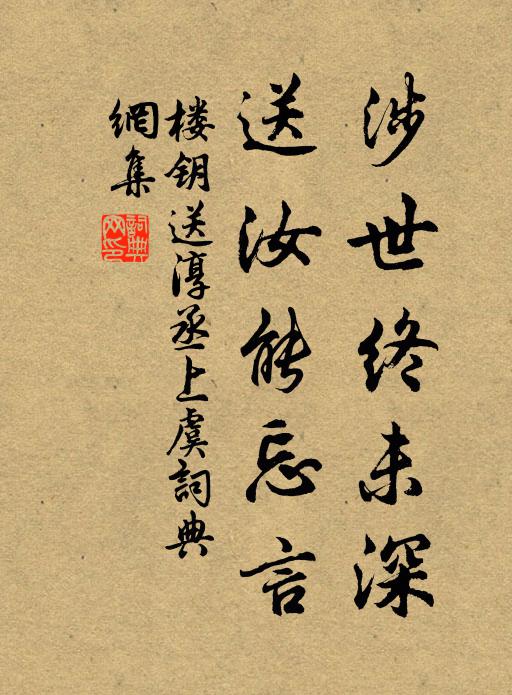 涉世终未深
送汝能忘言
楼钥送淳丞上虞詞典
網集
詞典網印